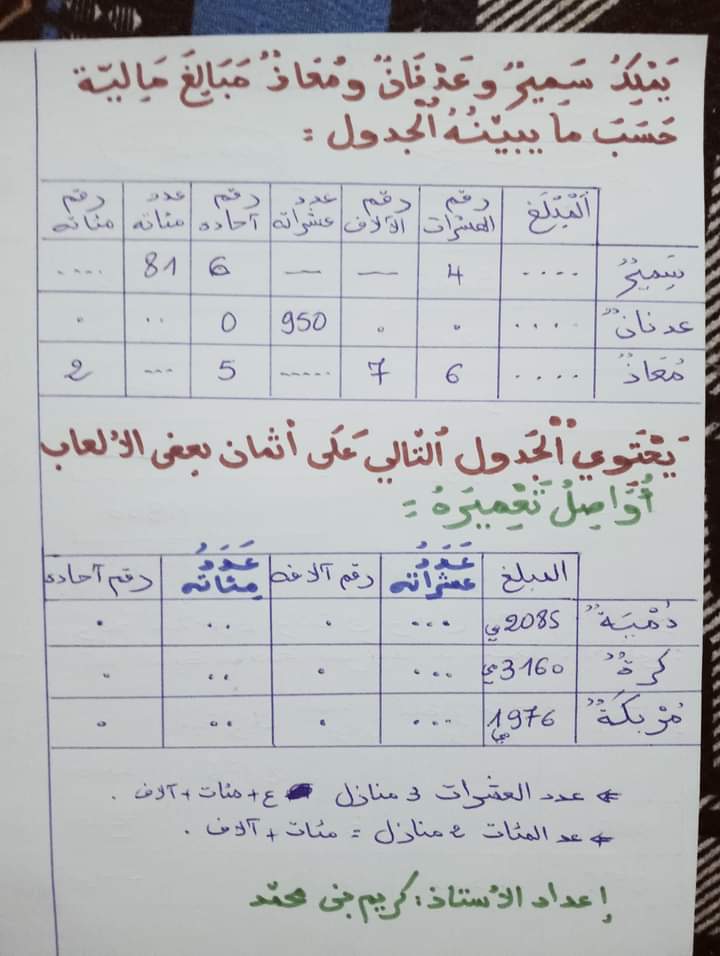 يَمْلِكُ سَمِيرٌ وعَدْنَانٌ ومُعَاذٌ مَبَالِغَ مَالِيّة
حَسَبَ ما يبيّنُهُ الْجدول :
اَلْمَبْلَغ رقم العشرات رقم الآلاف عدد عشراته رقم آحاده عدد مئاته رقم مئاته
سَمِيرٌ .... 4 — — 6 81 ....
عدنانٌ .... . . 950 0 .. .
مُعَاذٌ .... 6 7 ..... 5 ... 2
يَحْتَوِي الْجَدول التّالي عَلَى أثمان بعض الألعاب
أُوَاصِلُ تَعْمِيرَهُ :
المبلغ عَدَدُ عشراته رقم آلافه عَدَدُ مِئاته رقم آحاده
دُمْيَةٌ 2085 مي ... . .. .
كرةٌ 3160 مي ... . .. .
مُرْبِكَةٌ 1976 مي ... . .. .
← عدد العشرات 3 منازل ع + مئات + آلاف .
← عد المئات 2 منازل = مئات + آلاف .
إعداد الأستاذ : كريم بني محمّد